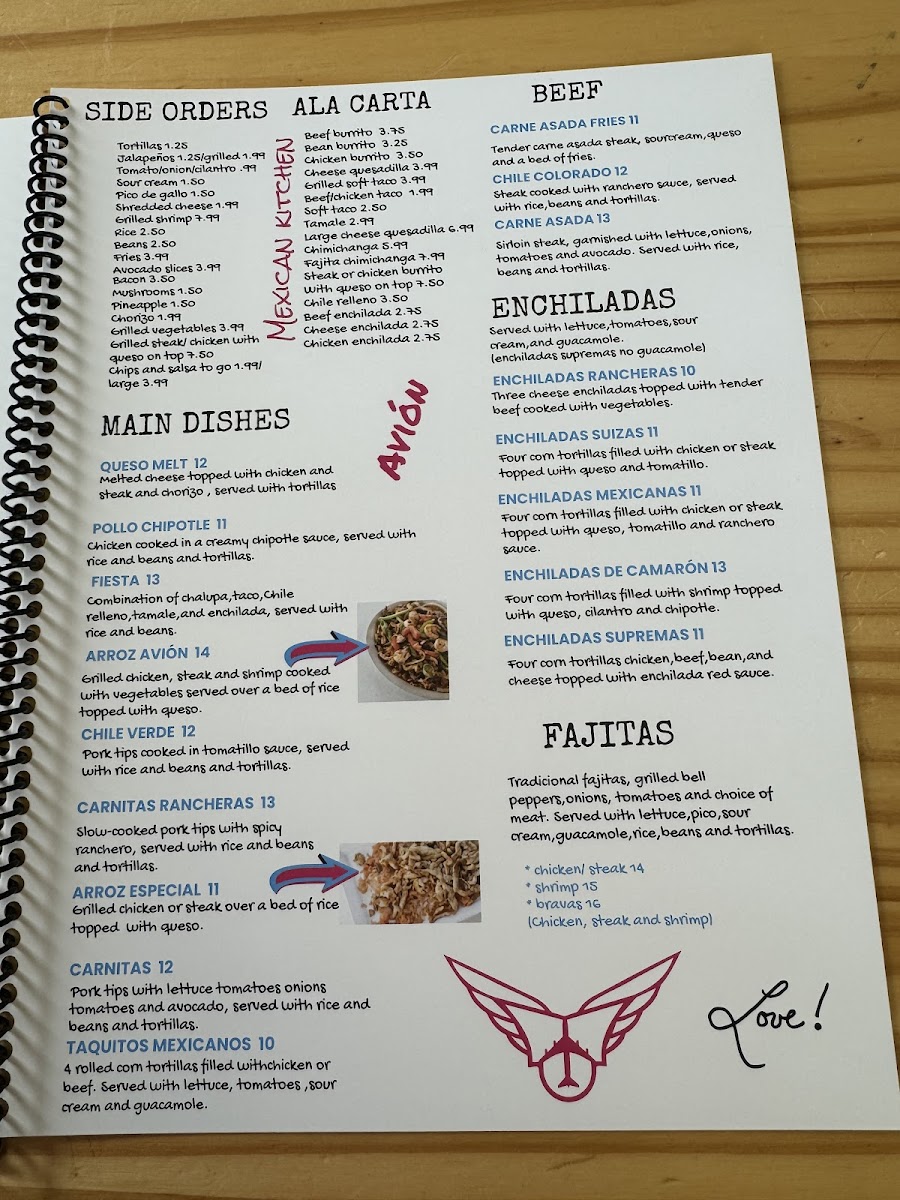 SIDE ORDERS
Tortillas 1.25
Jalapeños 1.25/grilled 1.99
Tomato/onion/cilantro .99
Sour cream 1.50
Pico de gallo 1.50
Shredded cheese 1.99
Grilled shrimp 7.99
Rice 2.50
Beans 2.50
Fries 3.99
Avocado slices 3.99
Bacon 3.50
Mushrooms 1.50
Pineapple 1.50
Chorizo 1.99
Grilled vegetables 3.99
Grilled steak/ chicken with
queso on top 7.50
Chips and salsa to go 1.99/
large 3.99
MEXICAN KITCHEN
ALA CARTA
Beef burrito 3.75
Bean burrito 3.25
Chicken burrito 3.50
Cheese quesadilla 3.99
Grilled soft taco 3.99
Beef/chicken taco 1.99
Soft taco 2.50
Tamale 2.99
Large cheese quesadilla 6.99
Chimichanga 5.99
Fajita chimichanga 7.99
Steak or chicken burrito
With queso on top 7.50
Chile relleno 3.50
Beef enchilada 2.75
Cheese enchilada 2.75
Chicken enchilada 2.75
AVIÓN
MAIN DISHES
QUESO MELT 12
Melted cheese topped with chicken and
steak and chorizo , served with tortillas
POLLO CHIPOTLE 11
Chicken cooked in a creamy chipotle sauce, served with
rice and beans and tortillas.
FIESTA 13
Combination of chalupa,taco,Chile
relleno,tamale,and enchilada, served with
rice and beans.
ARROZ AVIÓN 14
Grilled chicken, steak and shrimp cooked
with vegetables served over a bed of rice
topped with queso.
CHILE VERDE 12
Pork tips cooked in tomatillo sauce, served
with rice and beans and tortillas.
CARNITAS RANCHERAS 13
Slow-cooked pork tips with spicy
ranchero, served with rice and beans
and tortillas.
ARROZ ESPECIAL 11
Grilled chicken or steak over a bed of rice
topped with queso.
CARNITAS 12
Pork tips with lettuce tomatoes onions
tomatoes and avocado, served with rice and
beans and tortillas.
TAQUITOS MEXICANOS 10
4 rolled corn tortillas filled withchicken or
beef. Served with lettuce, tomatoes ,sour
cream and guacamole.
BEEF
CARNE ASADA FRIES 11
Tender carne asada steak, sourcream,queso
and a bed of fries.
CHILE COLORADO 12
Steak cooked with ranchero sauce, served
with rice,beans and tortillas.
CARNE ASADA 13
Sirloin steak, garnished with lettuce,onions,
tomatoes and avocado. Served with rice,
beans and tortillas.
ENCHILADAS
Served with lettuce,tomatoes,sour
cream,and guacamole.
(enchiladas supremas no guacamole)
ENCHILADAS RANCHERAS 10
Three cheese enchiladas topped with tender
beef cooked with vegetables.
ENCHILADAS SUIZAS 11
Four corn tortillas filled with chicken or steak
topped with queso and tomatillo.
ENCHILADAS MEXICANAS 11
Four corn tortillas filled with chicken or steak
topped with queso, tomatillo and ranchero
sauce.
ENCHILADAS DE CAMARÓN 13
Four corn tortillas filled with shrimp topped
with queso, cilantro and chipotle.
ENCHILADAS SUPREMAS 11
Four corn tortillas chicken,beef,bean,and
cheese topped with enchilada red sauce.
FAJITAS
Tradicional fajitas, grilled bell
peppers,onions, tomatoes and choice of
meat. Served with lettuce,pico,sour
cream,guacamole,rice,beans and tortillas.
* chicken/ steak 14
* shrimp 15
* bravas 16
(Chicken, steak and shrimp)
Love!